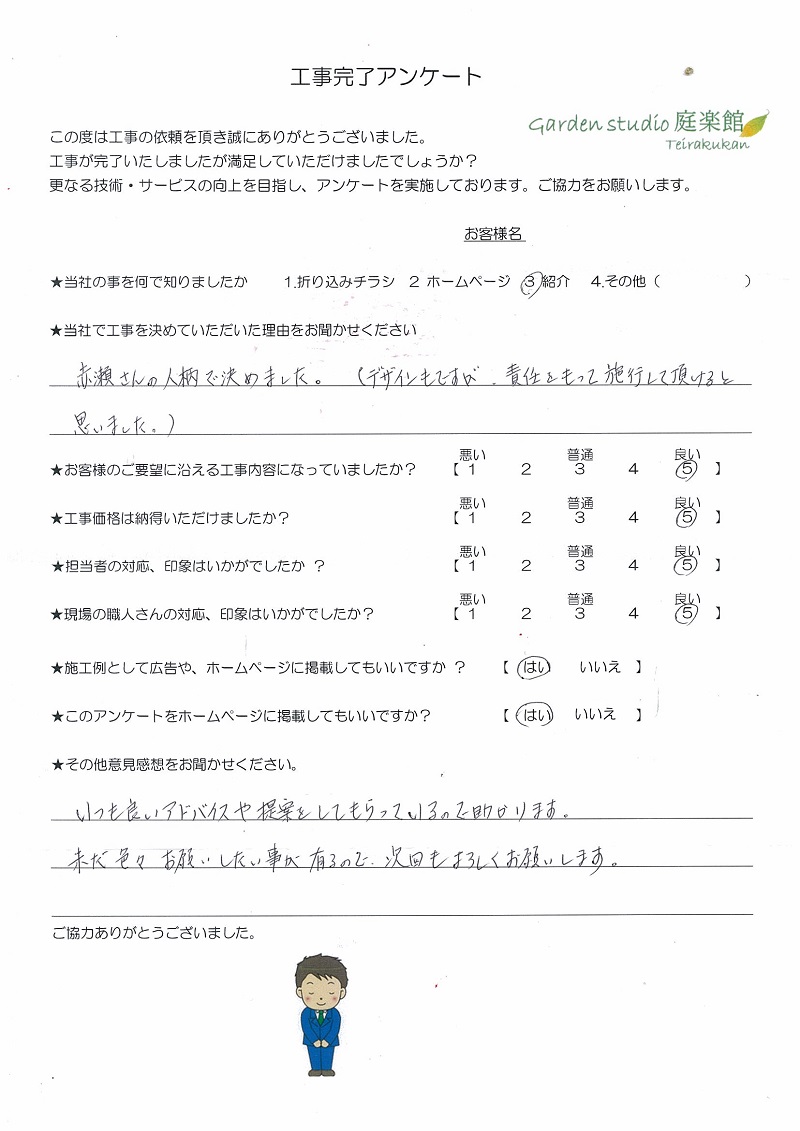 工事完了アンケート
Garden studio 庭楽館
Teirakukan
この度は工事の依頼を頂き誠にありがとうございました。
工事が完了いたしましたが満足していただけましたでしょうか？
更なる技術・サービスの向上を目指し、アンケートを実施しております。ご協力をお願いします。
お客様名
★当社の事を何で知りましたか 1.折り込みチラシ 2 ホームページ 3 紹介 4.その他（ ）
★当社で工事を決めていただいた理由をお聞かせください
赤瀬さんの人柄で決めました。（デザインもですが、責任をもって施行して頂けると
思いました。）
悪い 普通 良い
★お客様のご要望に沿える工事内容になっていましたか？ 【 1 2 3 4 5 】
悪い 普通 良い
★工事価格は納得いただけましたか？ 【 1 2 3 4 5 】
悪い 普通 良い
★担当者の対応、印象はいかがでしたか ？ 【 1 2 3 4 5 】
悪い 普通 良い
★現場の職人さんの対応、印象はいかがでしたか？ 【 1 2 3 4 5 】
★施工例として広告や、ホームページに掲載してもいいですか ？ 【 はい いいえ 】
★このアンケートをホームページに掲載してもいいですか？ 【 はい いいえ 】
★その他意見感想をお聞かせください。
いつも良いアドバイスや提案をしてもらっているので助かります。
未だ色々お願いしたい事が有るので、次回もよろしくお願いします。
ご協力ありがとうございました。